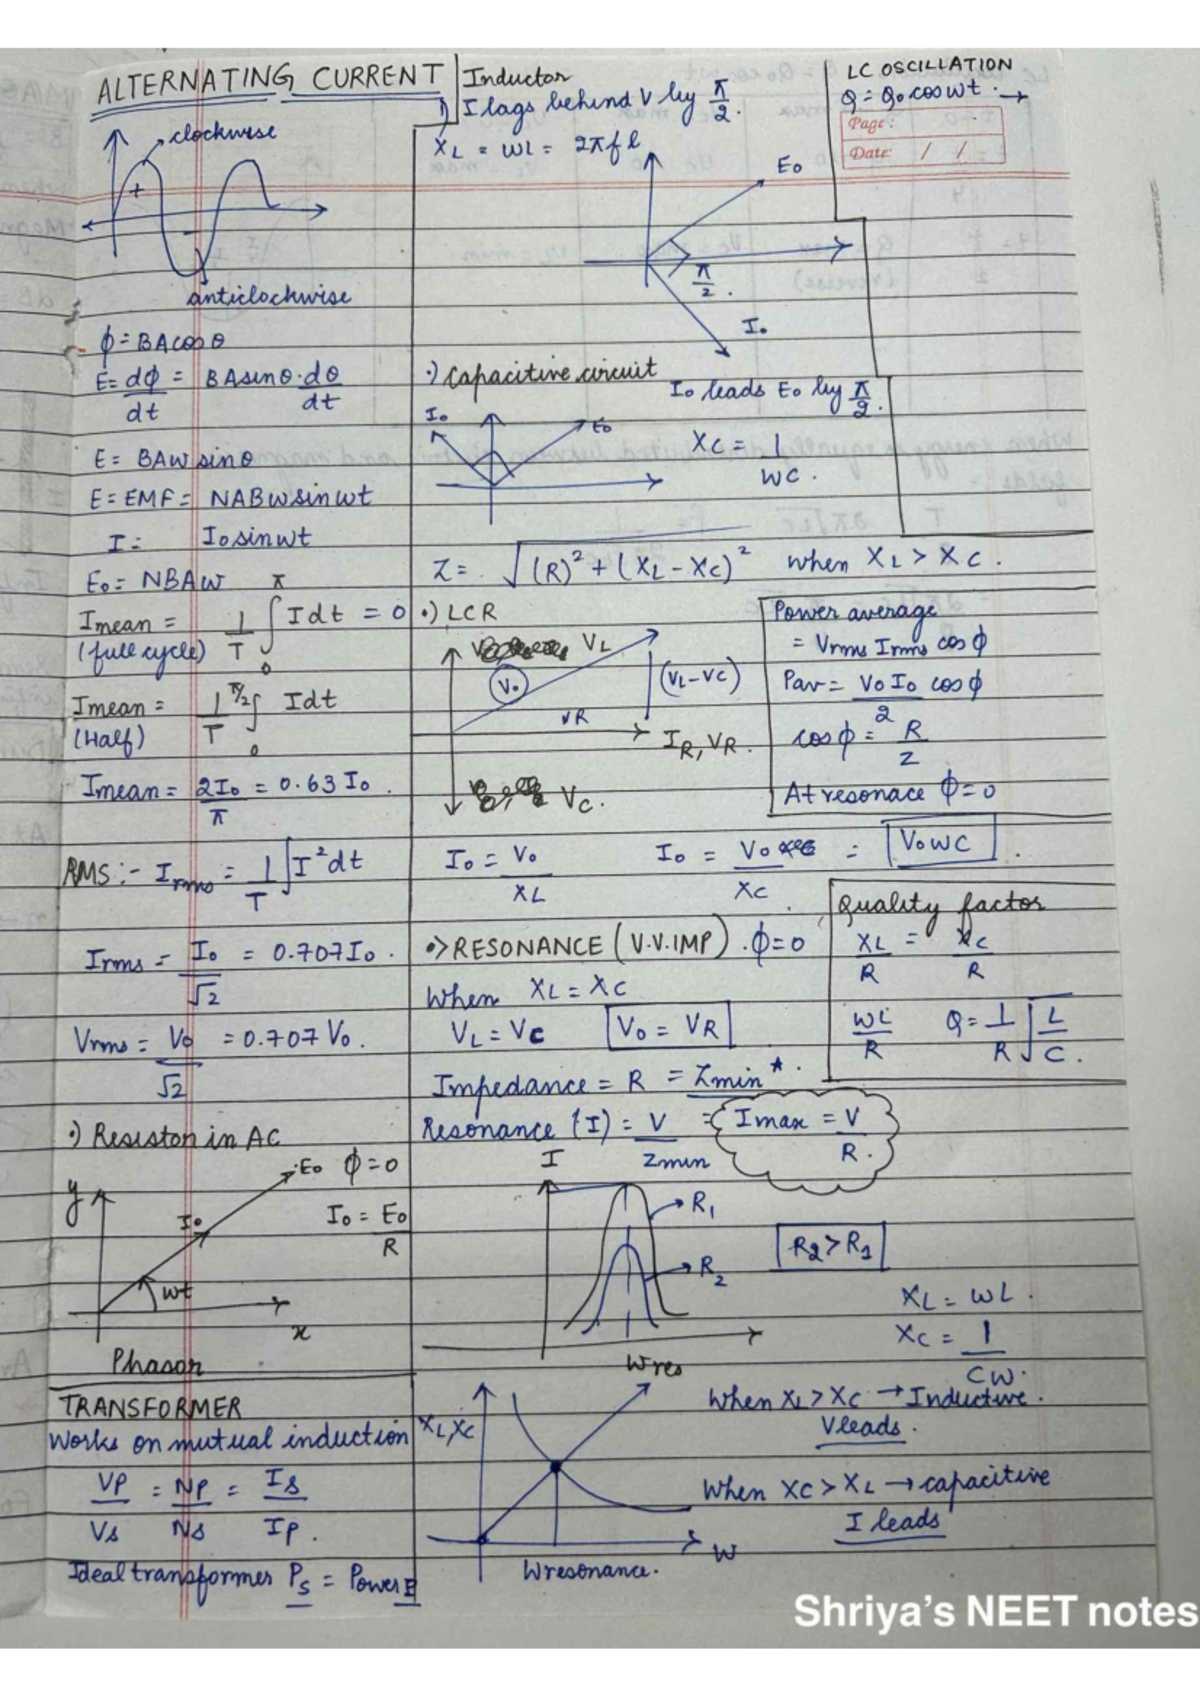 ALTERNATING CURRENT
clockwise
+
-
anticlockwise
ϕ = BA cos θ
E = dϕ/dt = BA sin θ · dθ/dt
E = BAW sin θ
E = EMF = NABW sin wt
I = I₀ sin wt
E₀ = NBAW
Imean = 1/T ∫₀^π I dt = 0
(full cycle)
Imean = 1/T ∫₀^π/₂ I dt
(Half)
Imean = 2I₀/π = 0.63 I₀.
RMS :- Irms = 1/T ∫ I² dt
Irms = I₀/√2 = 0.707 I₀.
Vrms = V₀/√2 = 0.707 V₀.
·) Resistor in AC
y
E₀ ϕ = 0
I₀
I₀ = E₀/R
wt
x
Phasor
TRANSFORMER
Works on mutual induction
VP/Vs = NP/Ns = Is/Ip.
Ideal transformer Ps = Power P
Inductor
·) I lags behind V by π/2.
XL = WL = 2πfl
E₀
π/2.
I₀
·) Capacitive circuit
I₀ leads E₀ by π/2.
I₀
E₀
XC = 1/WC.
Z = √(R)² + (XL - XC)² when XL > XC.
·) LCR
VL
V₀
(VL - VC)
VR
IR, VR.
VC.
Power average
= Vrms Irms cos ϕ
Pav = V₀ I₀/2 cos ϕ
cos ϕ = R/Z
At resonace ϕ = 0
I₀ = V₀/XL
I₀ = V₀/XC = V₀WC.
·> RESONANCE (V.V.IMP). ϕ = 0
When XL = XC
VL = VC V₀ = VR
Impedance = R = Zmin*.
Resonance (I) = V/Zmin = Imax = V/R.
Quality factor
XL/R = XC/R
WL/R Q = 1/R √L/C.
I
R₁
R₂
R₂ > R₁
Wres
XL = WL.
XC = 1/CW.
XL, XC
W
Wresonance.
When XL > XC → Inductive.
V leads.
When XC > XL → capacitive
I leads
LC OSCILLATION
Q = Q₀ cos wt. →
Page:
Date: / /
Shriya's NEET notes